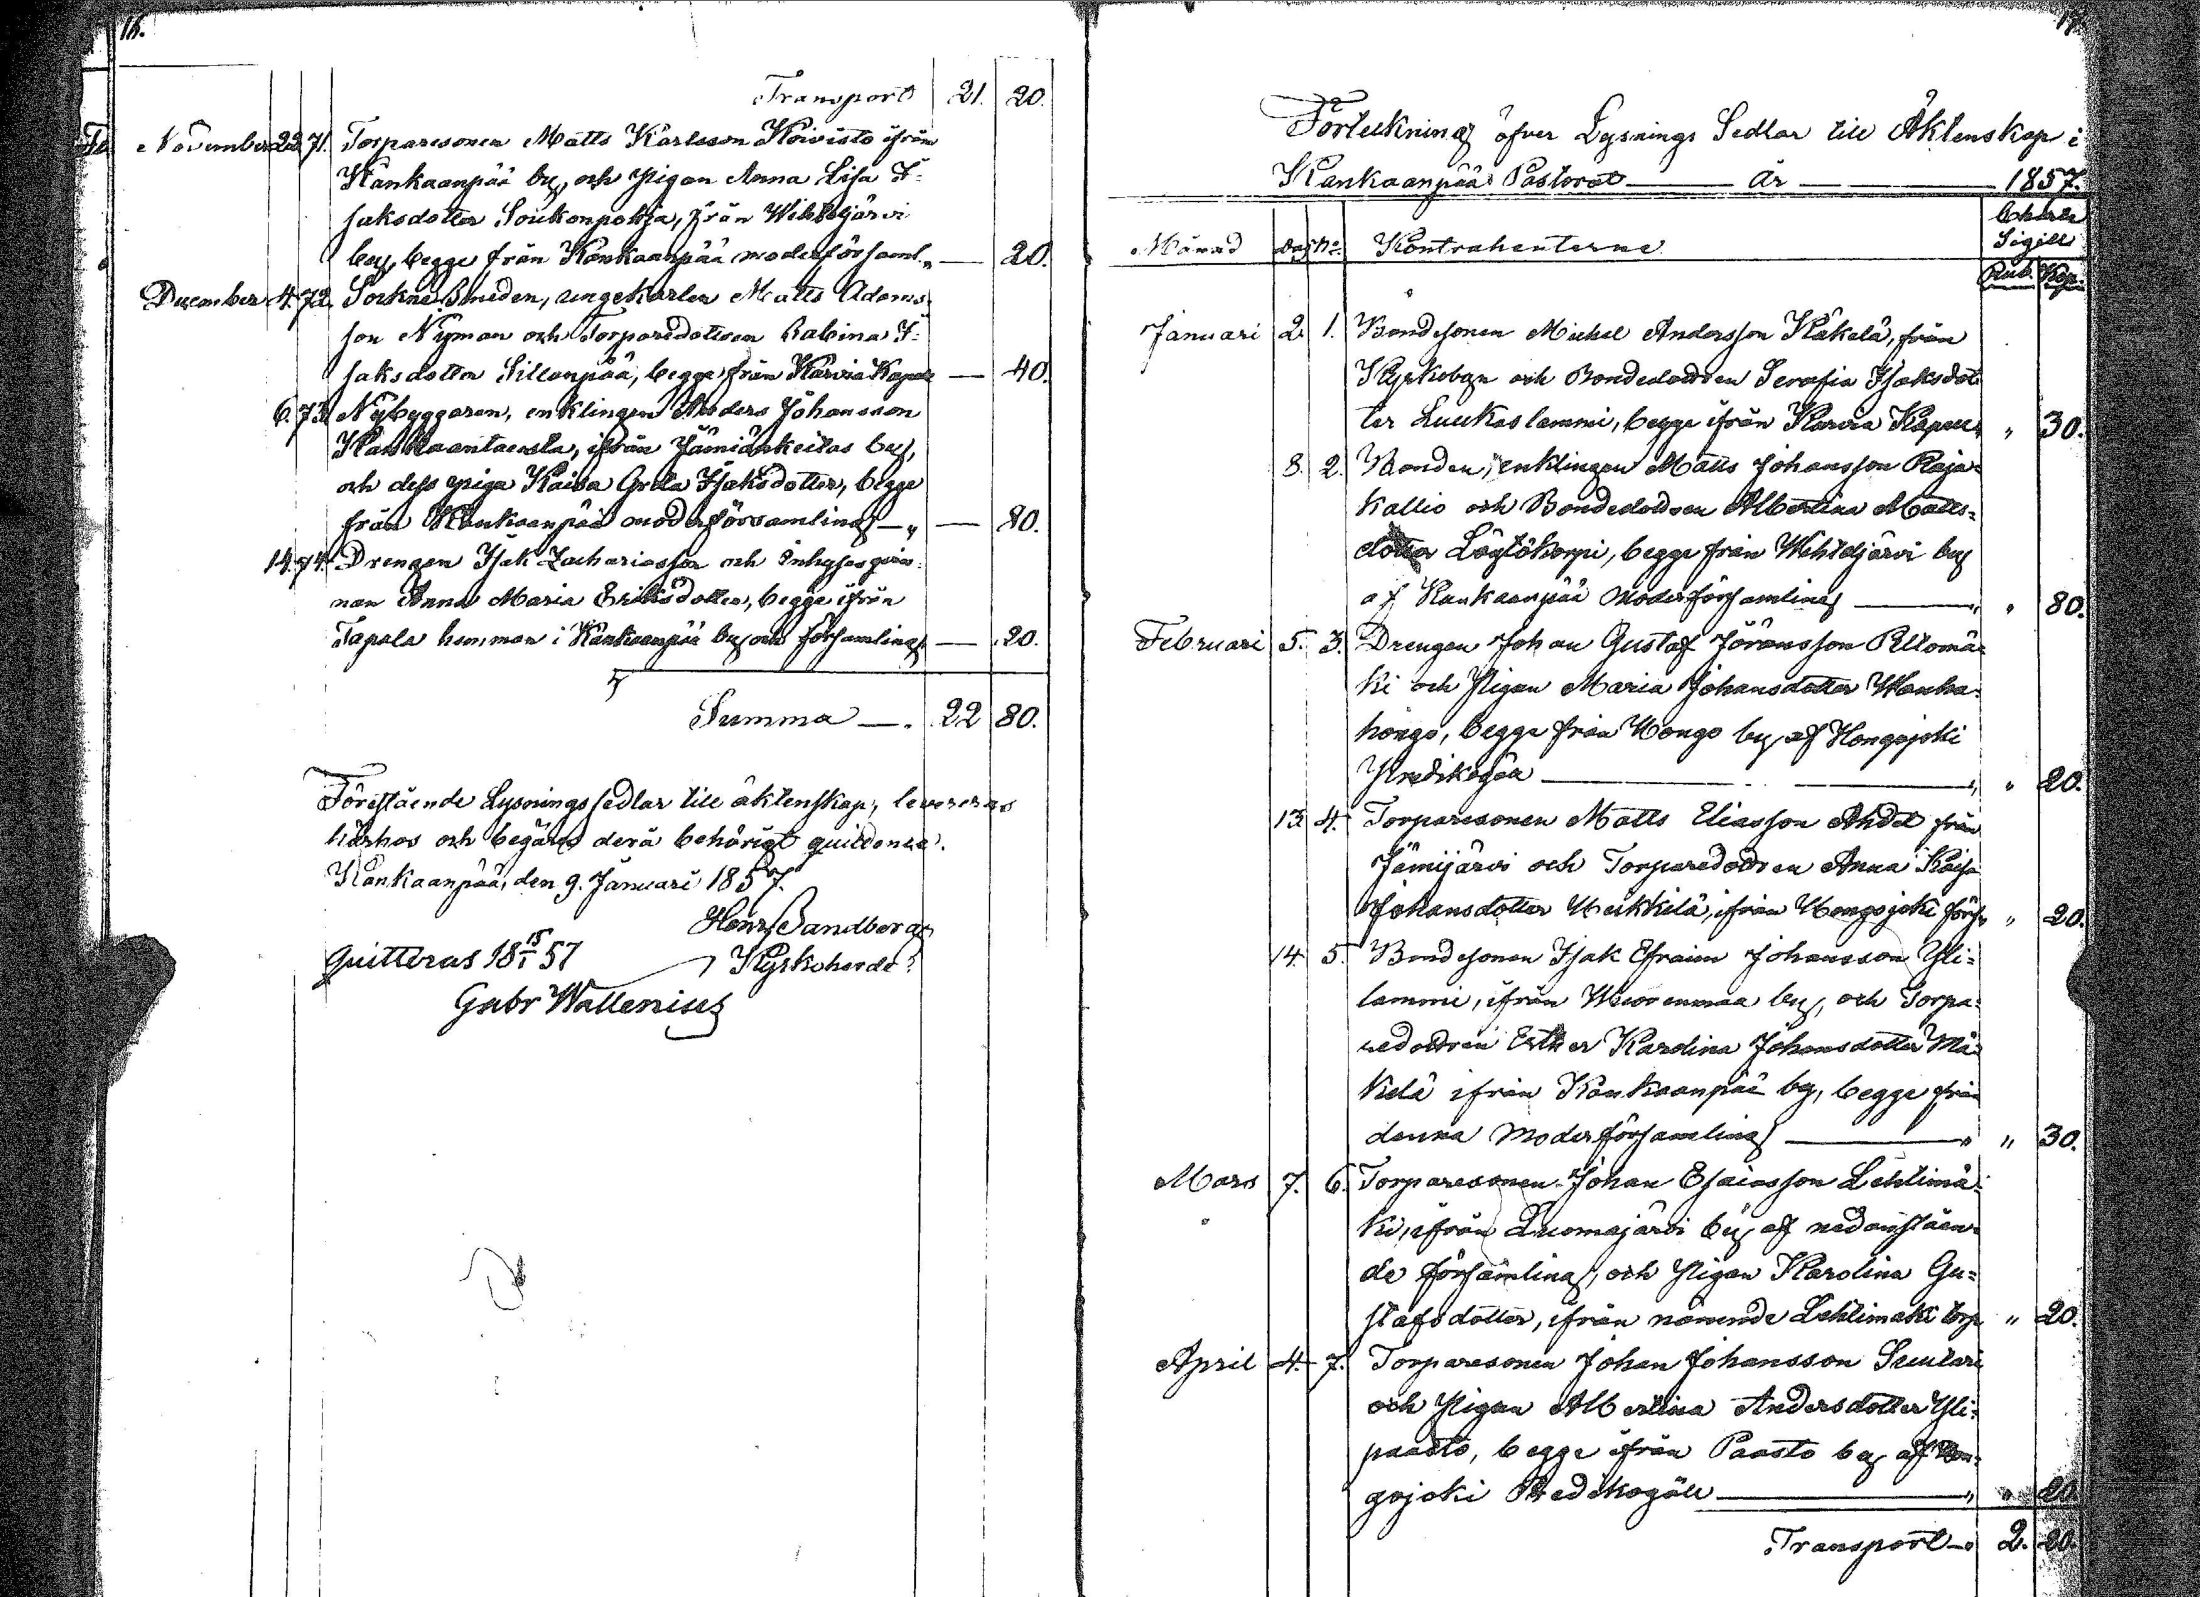 16.
Transport 21. 20.
November 22. 71. Torparesonen Matts Karlsson Koivisto ifrån
Kankaanpää by, och Pigan Anna Lisa I-
saksdotter Soukonpohja, från Wihteljärvi
by, begge från Kankaanpää moderförsaml. — 20.
December 4. 72. Sockne Smeden, ungekarlen Matts Adams-
son Nyman och Torparedottren Sabina I-
saksdotter Sillanpää, begge från Karvia Kapell — 40.
6. 73. Nybyggaren, enklingen Anders Johansson
Kankaantausta, ifrån Jämiänkeitas by,
och dess piga Kaisa Greta Isaksdotter, begge
från Kankaanpää moderförsamling — „ — 80.
14. 74. Drengen Isak Zachariasson och Inhysesqvin-
nan Anna Maria Eriksdotter, begge ifrån
Tapala hemman i Kankaanpää by och församling — 20.
Summa —. 22 80.
Förestående Lysningssedlar till äktenskap, levereras
härhos och begäres derå behörigt quittence.
Kankaanpää, den 9. Januari 1857.
Henr Sandberg
Kyrkoherde
Quitteras 18 15/1 57
Gabr Wallenius
17.
Förteckning öfver Lysnings Sedlar till Äktenskap i
Kankaanpää Pastorat — År — 1857.
Charte
Sigill
Månad Dag No. Kontrahenterne
Rub. Kop.
Januari 2. 1. Bondesonen Michel Andersson Käkelä, från
Kyrkobyn och Bondedottren Serafia Isaksdot-
ter Luukaslammi, begge ifrån Karvia Kapell „ 30.
8. 2. Bonden, enklingen Matts Johansson Raja-
kallio och Bondedottren Albertina Matts-
dotter Löytökorpi, begge från Wihteljärvi by
af Kankaanpää Moderförsamling — „ „ 80.
Februari 5. 3. Drengen Johan Gustaf Jöransson Peltomä-
ki och Pigan Maria Johansdotter Wanha-
hongo, begge från Hongo by af Hongojoki
Predikogäll — „ „ 20.
13. 4. Torparesonen Matts Eliasson Ahde från
Jämijärvi och Torparedottren Anna Kaisa
Johansdotter Heikkilä, ifrån Hongojoki förs. „ 20.
14. 5. Bondesonen Isak Efraim Johansson Yli-
lammi, ifrån Wuorenmaa by, och Torpa-
redottren Esther Karolina Johansdotter Mä-
kelä ifrån Kankaanpää by, begge från
denna Moderförsamling — „ „ 30.
Mars 7. 6. Torparesonen Johan Esaiasson Lehtimä-
ki, ifrån Luomajärvi by af nedanståen-
de församling, och Pigan Karolina Gu-
stafsdotter, ifrån nämnde Lehtimäki torp „ 20.
April 4. 7. Torparesonen Johan Johansson Suutari
och Pigan Albertina Andersdotter Yli-
paasto, begge ifrån Paasto by af Hon-
gojoki Predikogäll — „ „ 20.
Transport — 2. 20.